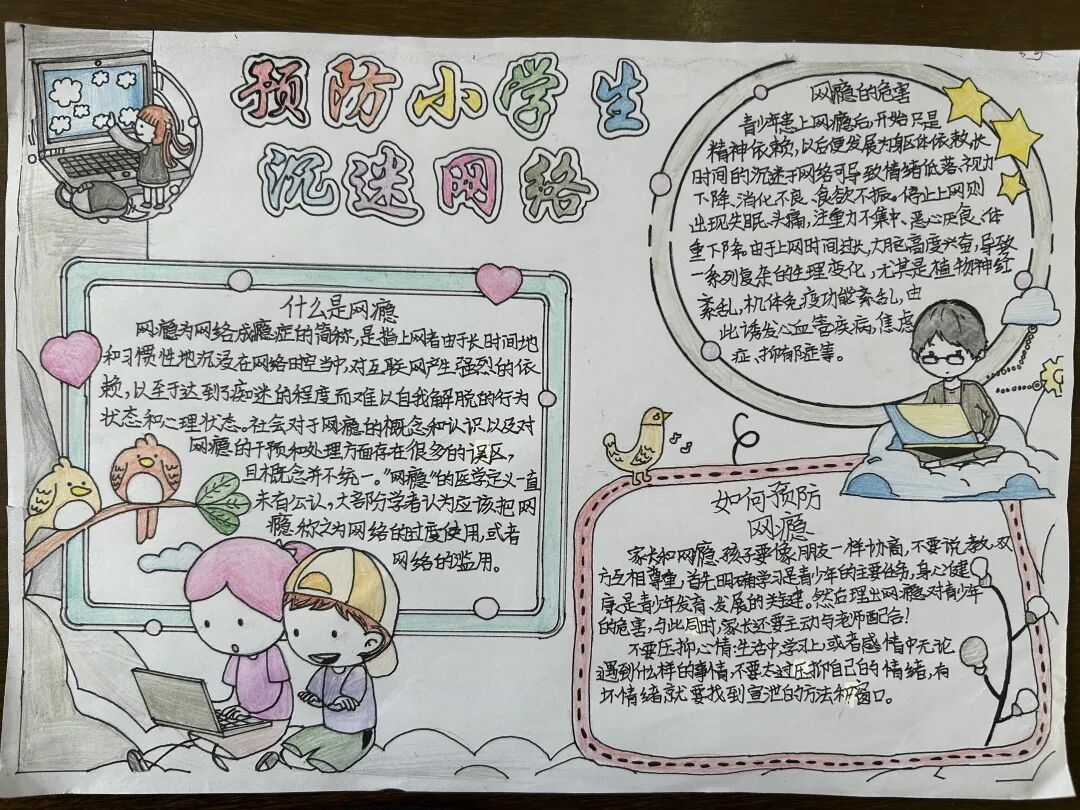 预防小学生
沉迷网络
什么是网瘾
网瘾为网络成瘾症的简称,是指上网者由于长时间地
和习惯性地沉浸在网络时空当中,对互联网产生强烈的依
赖,以至于达到了痴迷的程度而难以自我解脱的行为
状态和心理状态。社会对于网瘾的概念和认识以及对
网瘾的干预和处理方面存在很多的误区,
且概念并不统一。"网瘾"的医学定义一直
未有公认,大部防学者认为应该把网
瘾称之为网络的过度使用,或者
网络的滥用。
网瘾的危害
青少年患上网瘾后,开始只是
精神依赖,以后便发展为躯体依赖,长
时间的沉迷于网络可导致情绪低落、视力
下降、消化不良、食欲不振。停止上网则
出现失眠、头痛,注重力不集中、恶心厌食、体
重下降。由于上网时间过长,大脑高度兴奋,导致
一系列复杂的生理变化,尤其是植物神经
紊乱,机体免疫功能紊乱,由
此诱发心血管疾病,焦虑
症、抑郁症等。
如何预防
网瘾
家长和网瘾孩子要像朋友一样协商,不要说教,双
方互相尊重,首先明确学习是青少年的主要任务,身心健
康是青少年发育、发展的关键。然后理出网瘾对青少年
的危害,与此同时,家长还要主动与老师配合!
不要压抑心情:生活中,学习上,或者感情中无论
遇到什么样的事情,不要太过压抑自己的情绪,有
坏情绪就要找到宣泄的方法和窗口。